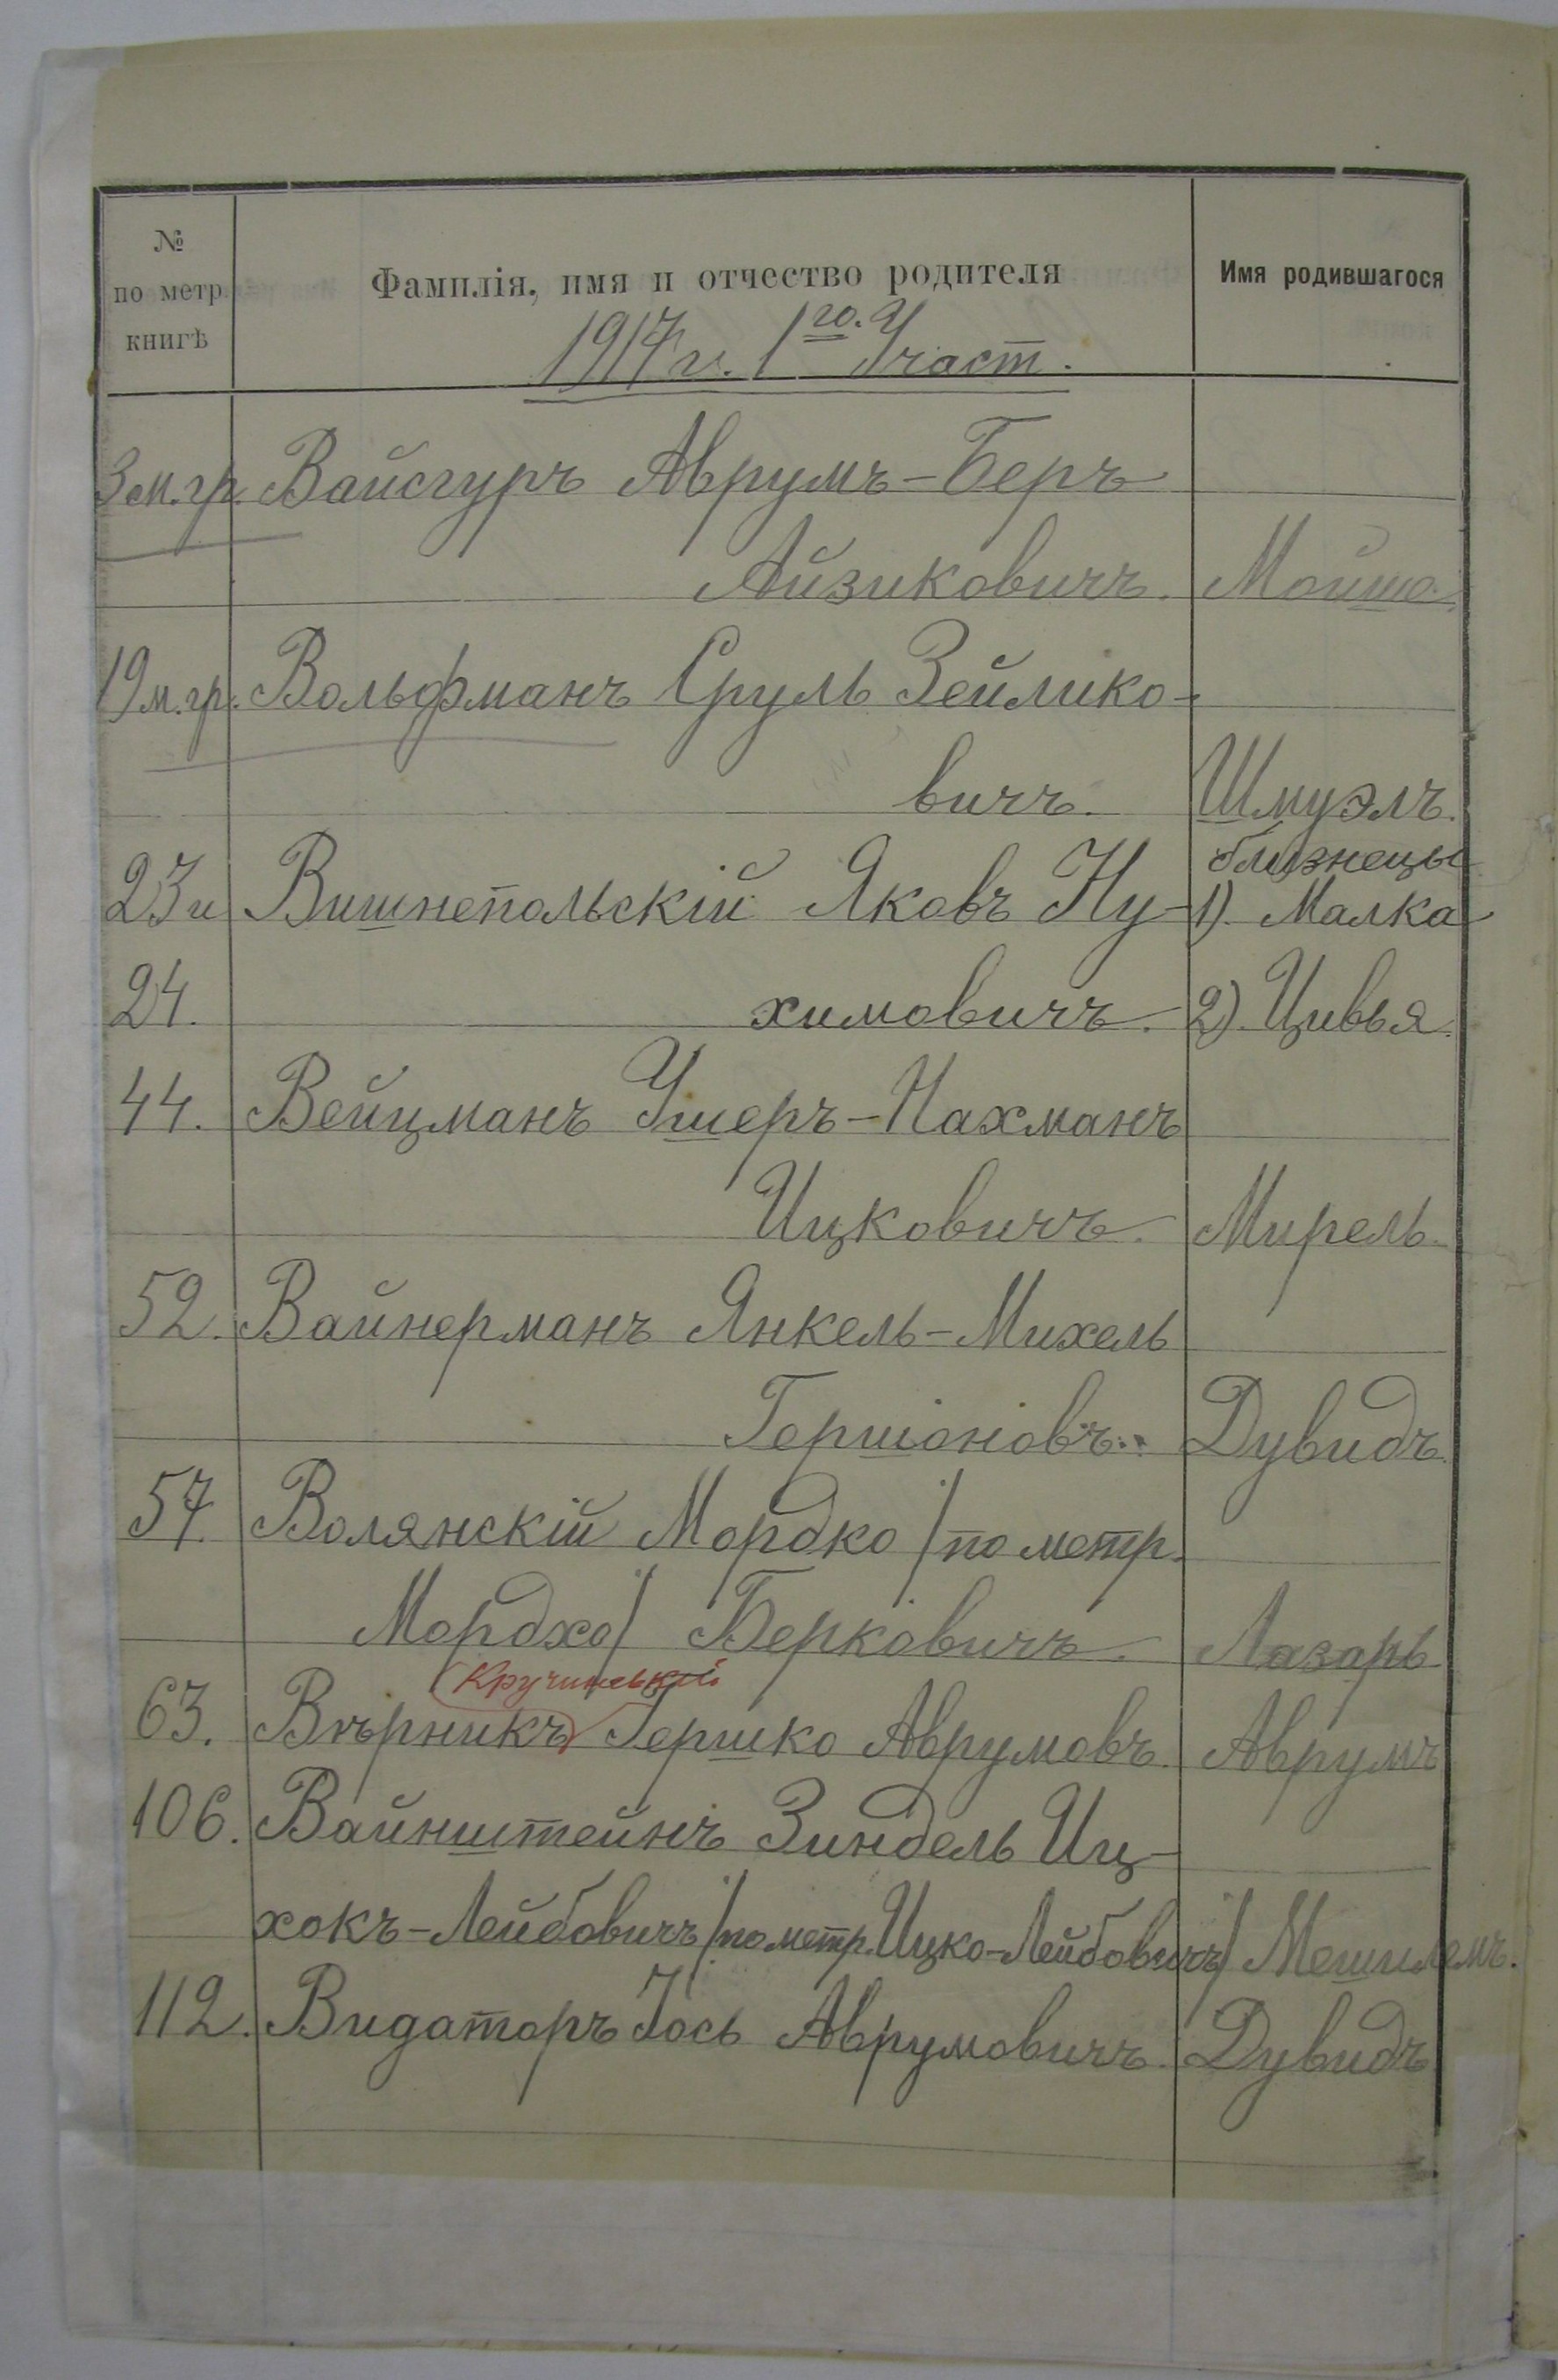 № по метр. книгѣ
Фамилія, имя и отчество родителя
Имя родившагося
1917 г. 1го. Участ.
3 м. гр. Вайсгуръ Аврумъ-Беръ
Айзиковичъ. Мойше.
19 м. гр. Вольфманъ Сруль Зейлико-
вичъ. Шмуэлъ.
близнецы
23 и Вишнепольскій Яковъ Ну- 1). Малка
24. химовичъ. 2). Цивья.
44. Вейцманъ Ушеръ-Нахманъ
Ицковичъ. Мирель.
52. Вайнерманъ Янкель-Михель
Гершоновъ. Дувидъ.
57. Волянскій Мордко / по метр.
Мордхо / Берковичъ. Лазарь
Кручинский
63. Вѣрникъ Гершко Аврумовъ. Аврумъ
106. Вайнштейнъ Зиндель Иц-
хокъ-Лейбовичъ / по метр. Ицко-Лейбовичъ / Мешилемъ.
112. Видаторъ Іось Аврумовичъ. Дувидъ.